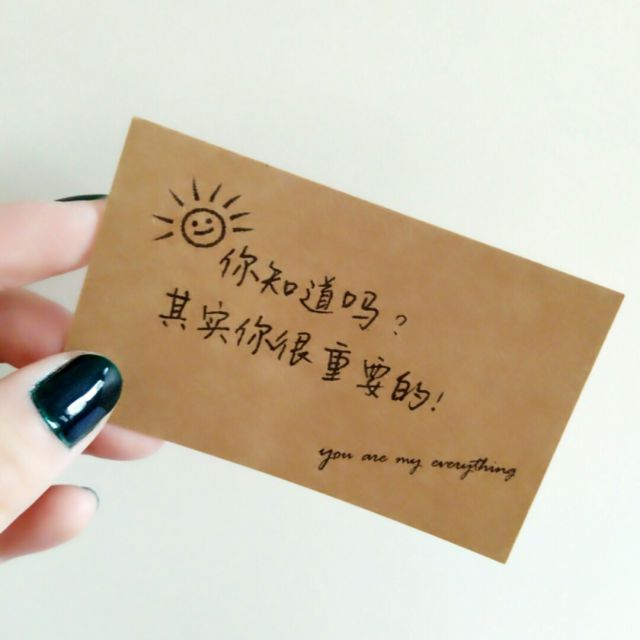 你知道吗?
其实你很重要的!
you are my everything